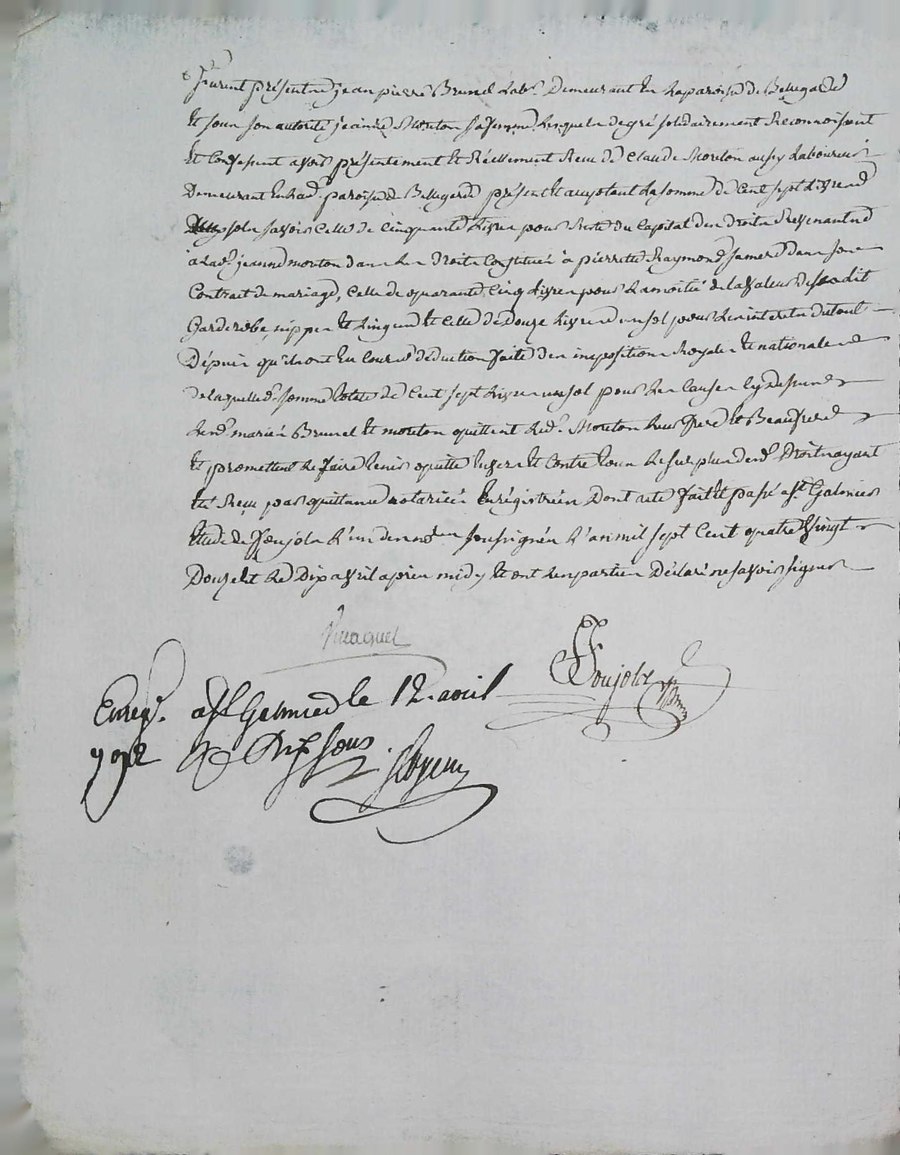 furent présents jean pierre Brunel lab.r Demeurant en la paroisse de Bellegarde
Et sous son autorité jeanne Mouton sa femme lesquels de gré solidairement Reconnoissent
Et Confessent avoir présentement Et Réellement Recu de Claude Mouton aussy Laboureur
Demeurant en lad. paroisse de Bellegarde présent Et acceptant la somme de Cent sept Livres
sol savoir Celle de Cinquante Livres pour Reste du Capital des Droits Revenants
a lad. jeanne mouton dans les Droits Constitués à pierrette Raymond sa mere dans son
Contrat de mariage, Celle de quarante Cinq Livres pour la moitié de la valeur de sondit
Garderobe, nippes Et Linges Et Celle de Douze Livres un sol pour les interets du tout
Depuis qu'ils ont Eu Cours déduction faite des impositions Royales Et nationales
de laquelle d. somme totale de Cent sept Livres un sol pour les Causes cy dessus
les d. mariés Brunel Et mouton quittent led. Mouton leur frere Et Beaufrere
Et promettent le faire tenir quitte Envers Et Contre tous le surplus desd. Droits ayant
Eté Recu par quittances notariées Enregistrées Dont acte fait Et passé a St Galmier
Etude de Soujols L'un des nores soussignés L'an mil sept Cent quatre Vingt
Douze Et le Dix avril après midy Et ont les parties Déclaré ne savoir signer
Soujols
Enreg. a St Galmier le 12 avril
1792 Rx Dix sous.